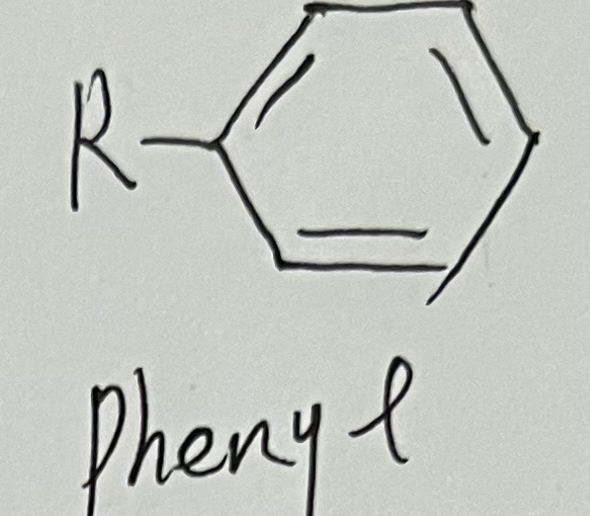 R
Phenyl